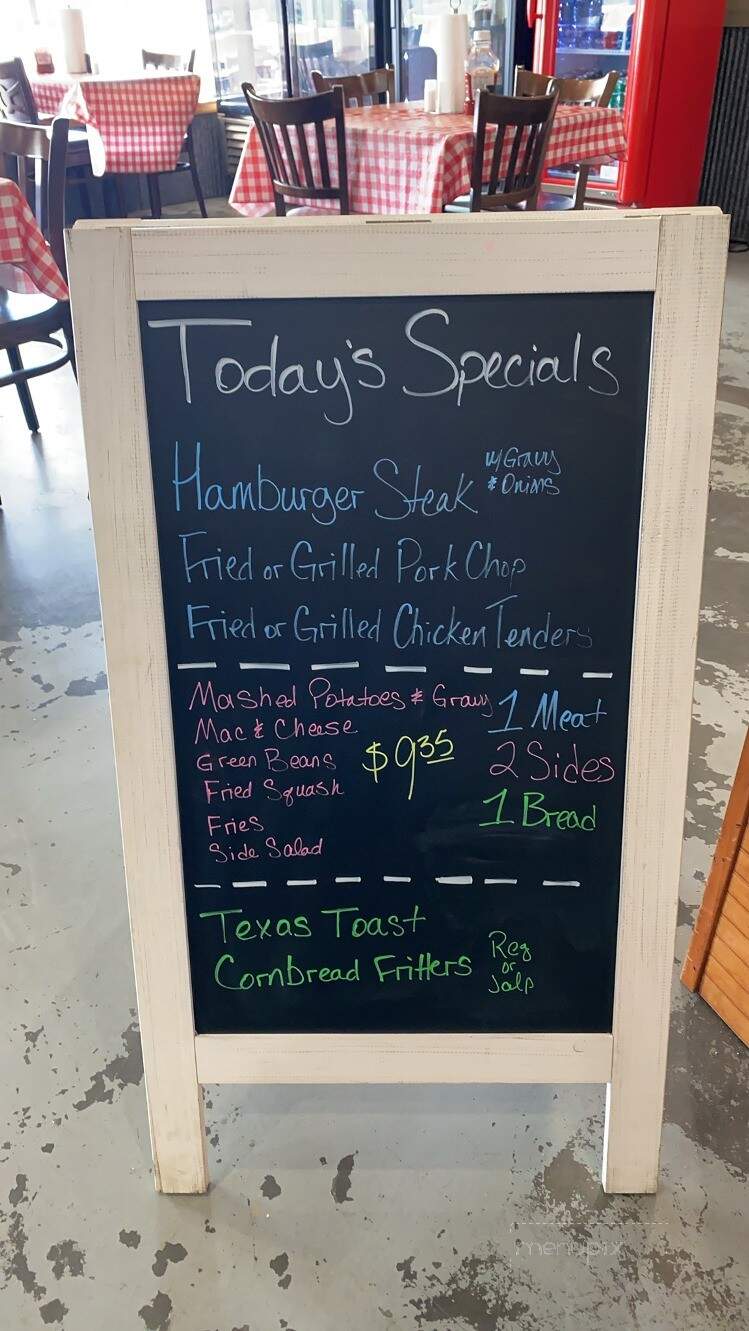 Today's Specials
Hamburger Steak w/ Gravy & Onions
Fried or Grilled Pork Chop
Fried or Grilled Chicken Tenders
Mashed Potatoes & Gravy
Mac & Cheese
Green Beans
Fried Squash
Fries
Side Salad
$9.35
1 Meat
2 Sides
1 Bread
Texas Toast
Cornbread Fritters Reg or Jalp
menupix